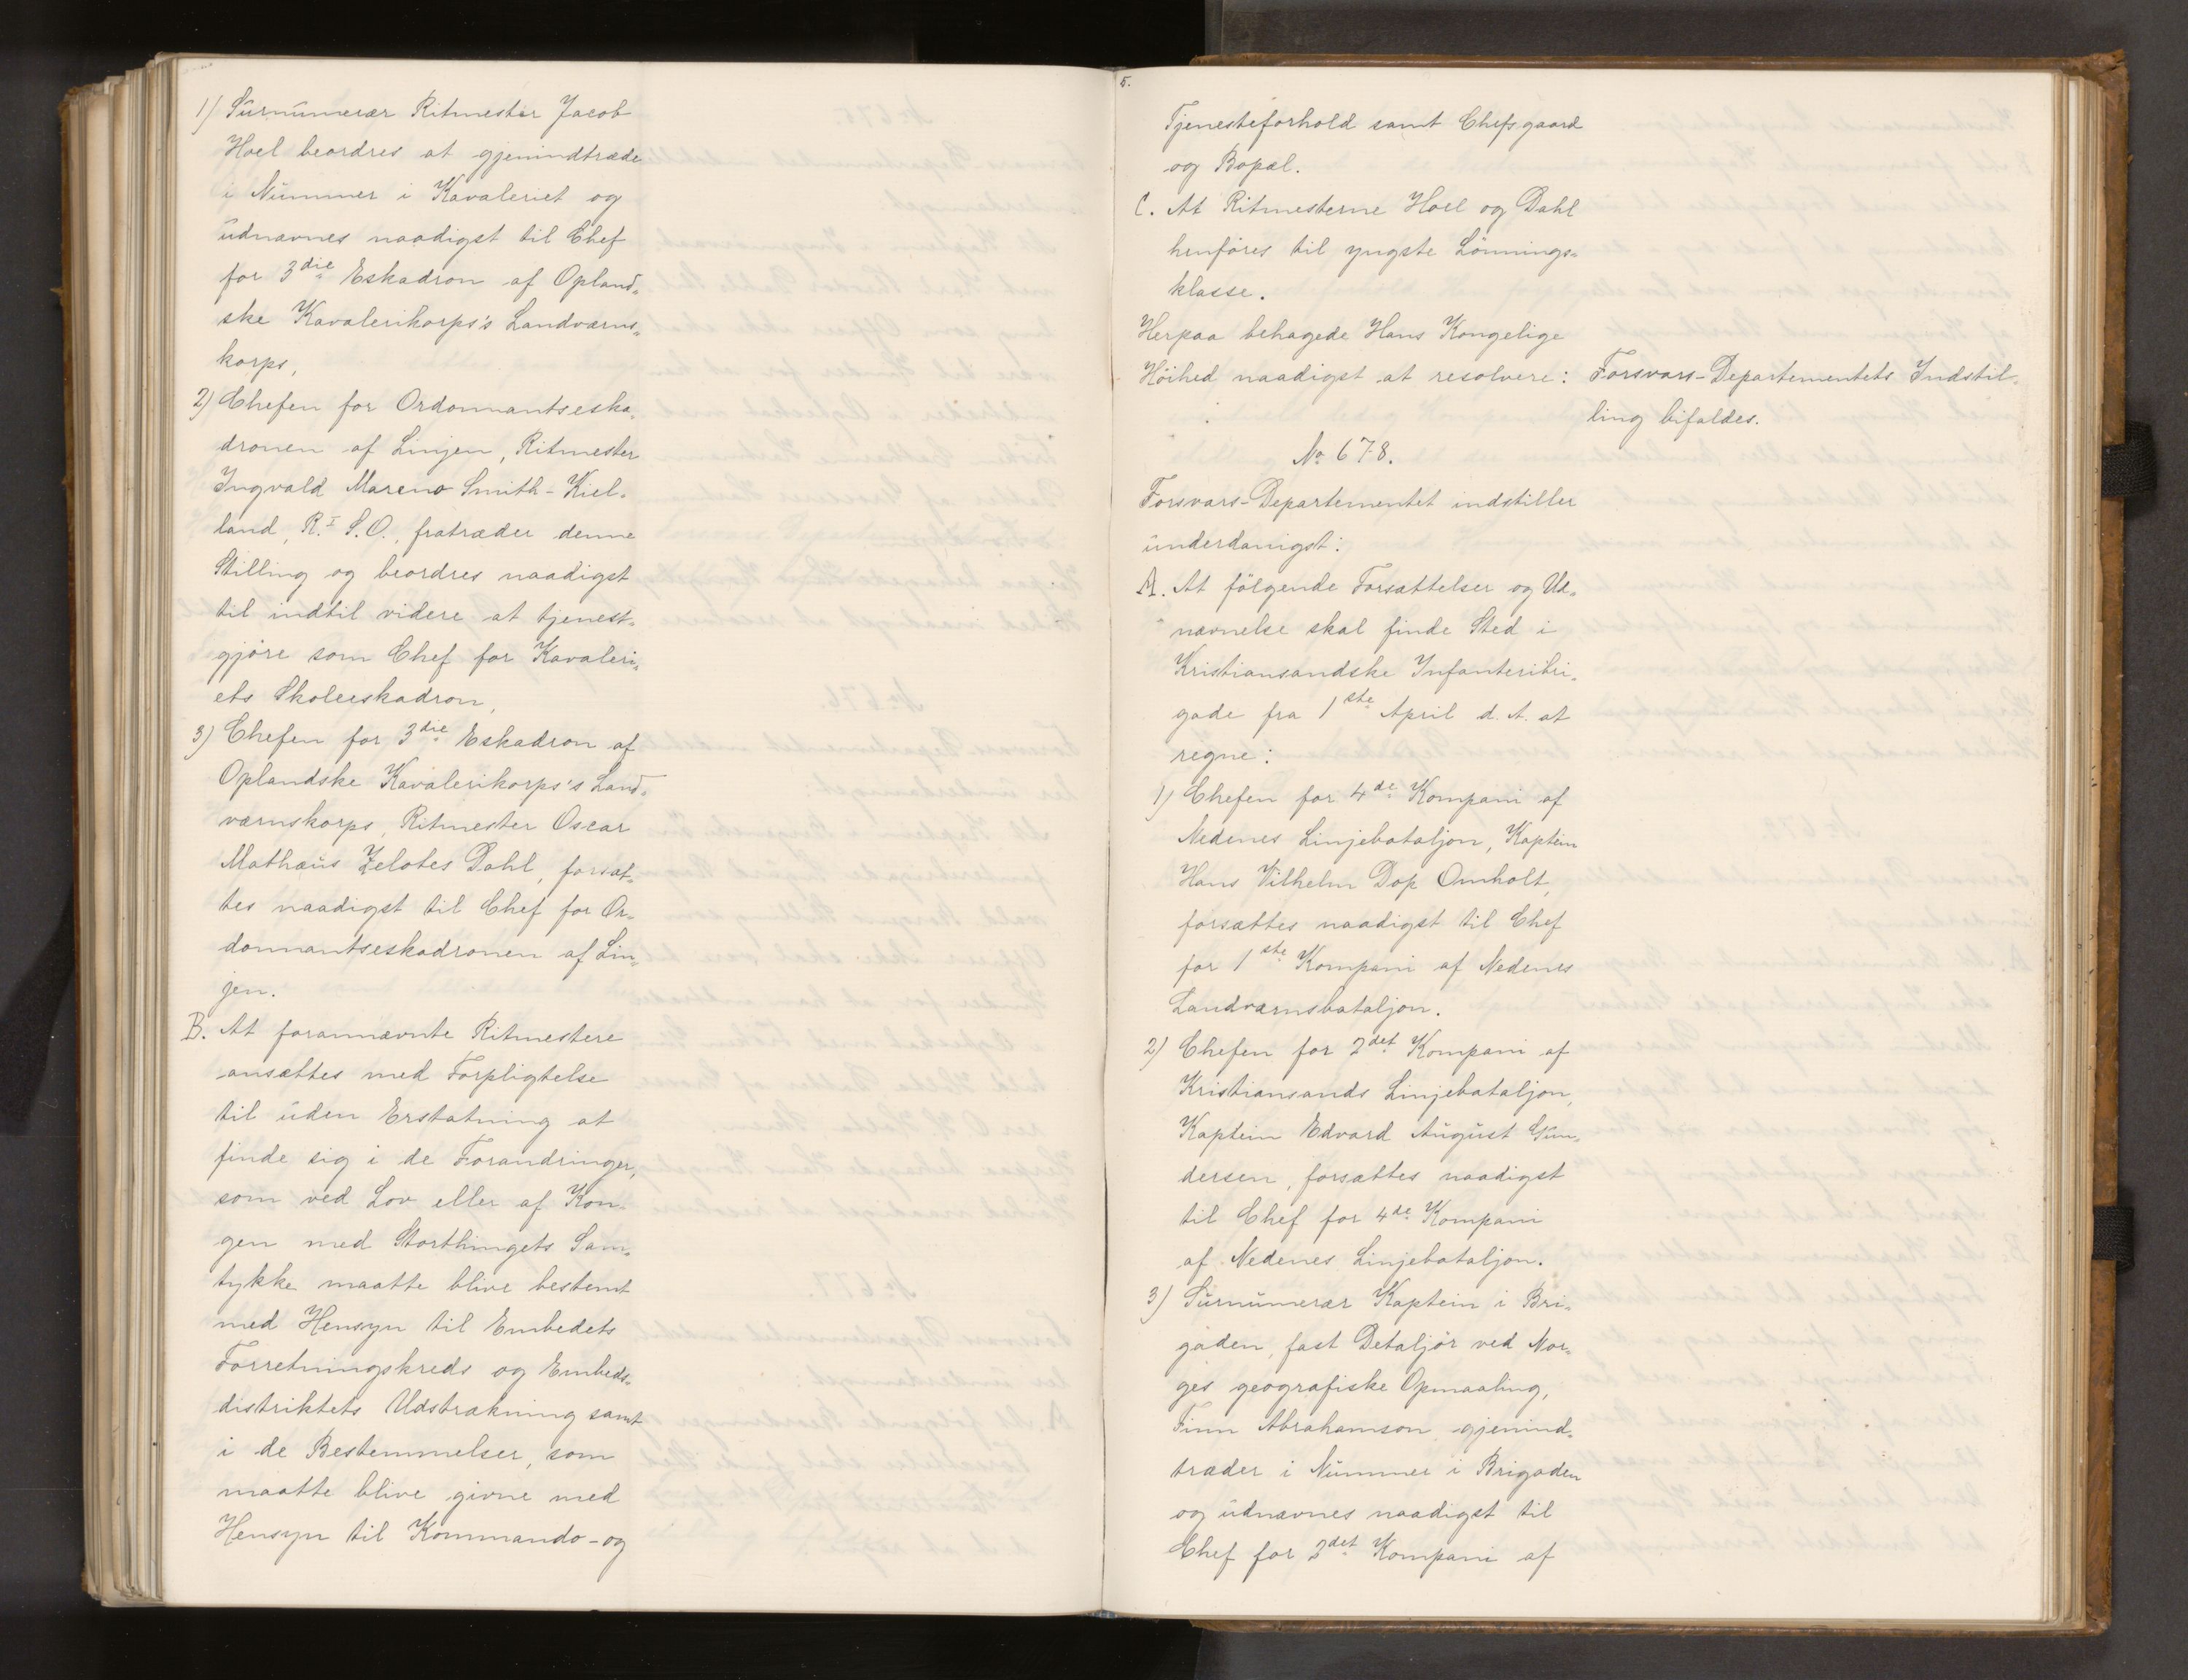 1) Surnumerær Ritmester Jacob
Hoel beordres at gjenindtræde
i Nummer i Kavaleriet og
udnævnes naadigst til Chef
for 3die Eskadron af Opland„
ske Kavalerikorps's Landværns„
korps,
2) Chefen for Ordonnantseska„
dronen af Linjen, Ritmester
Ingvald Mareno Smith-Kiel„
land, R.I S.O., fratræder denne
Stilling og beordres naadigst
til indtil videre at tjenest„
gjøre som Chef for Kavaleri„
ets Skoleeskadron,
3) Chefen for 3die Eskadron af
Oplandske Kavalerikorps's Land„
værnskorps, Ritmester Oscar
Mathæus Zelotes Dahl, forsæt„
tes naadigst til Chef for Or„
donnantseskadronen af Lin„
jen.
B. At forannævnte Ritmestere
ansættes med Forpligtelse
til uden Erstatning at
finde sig i de Forandringer,
som ved Lov eller af Kon„
gen med Storthingets Sam„
tykke maatte blive bestemt
med Hensyn til Embedets
Forretningskreds og Embeds„
distriktets Udstrækning samt
i de Bestemmelser, som
maatte blive givne med
Hensyn til Kommando- og
5.
Tjenesteforhold samt Chefsgaard
og Bopæl.
C. At Ritmesterne Hoel og Dahl
henføres til yngste Lønnings„
klasse.
Herpaa behagede Hans Kongelige
Høihed naadigst at resolvere: Forsvars-Departementets Indstil„
ling bifaldes.
No 678.
Forsvars-Departementet indstiller
underdanigst:
A. At følgende Forsættelser og Ud„
nævnelse skal finde Sted i
Kristiansandske Infanteribri„
gade fra 1ste April d. A. at
regne:
1) Chefen for 4de Kompani af
Nedenes Linjebataljon, Kaptein
Hans Vilhelm Dop Omholt,
forsættes naadigst til Chef
for 1ste Kompani af Nedenes
Landværnsbataljon.
2) Chefen for 2det Kompani af
Kristiansands Linjebataljon,
Kaptein Edvard August Gun„
dersen, forsættes naadigst
til Chef for 4de Kompani
af Nedenes Linjebataljon.
3) Surnumerær Kaptein i Bri„
gaden, fast Detaljør ved Nor„
ges geografiske Opmaaling,
Finn Abrahamson gjenind„
træder i Nummer i Brigaden
og udnævnes naadigst til
Chef for 2det Kompani af